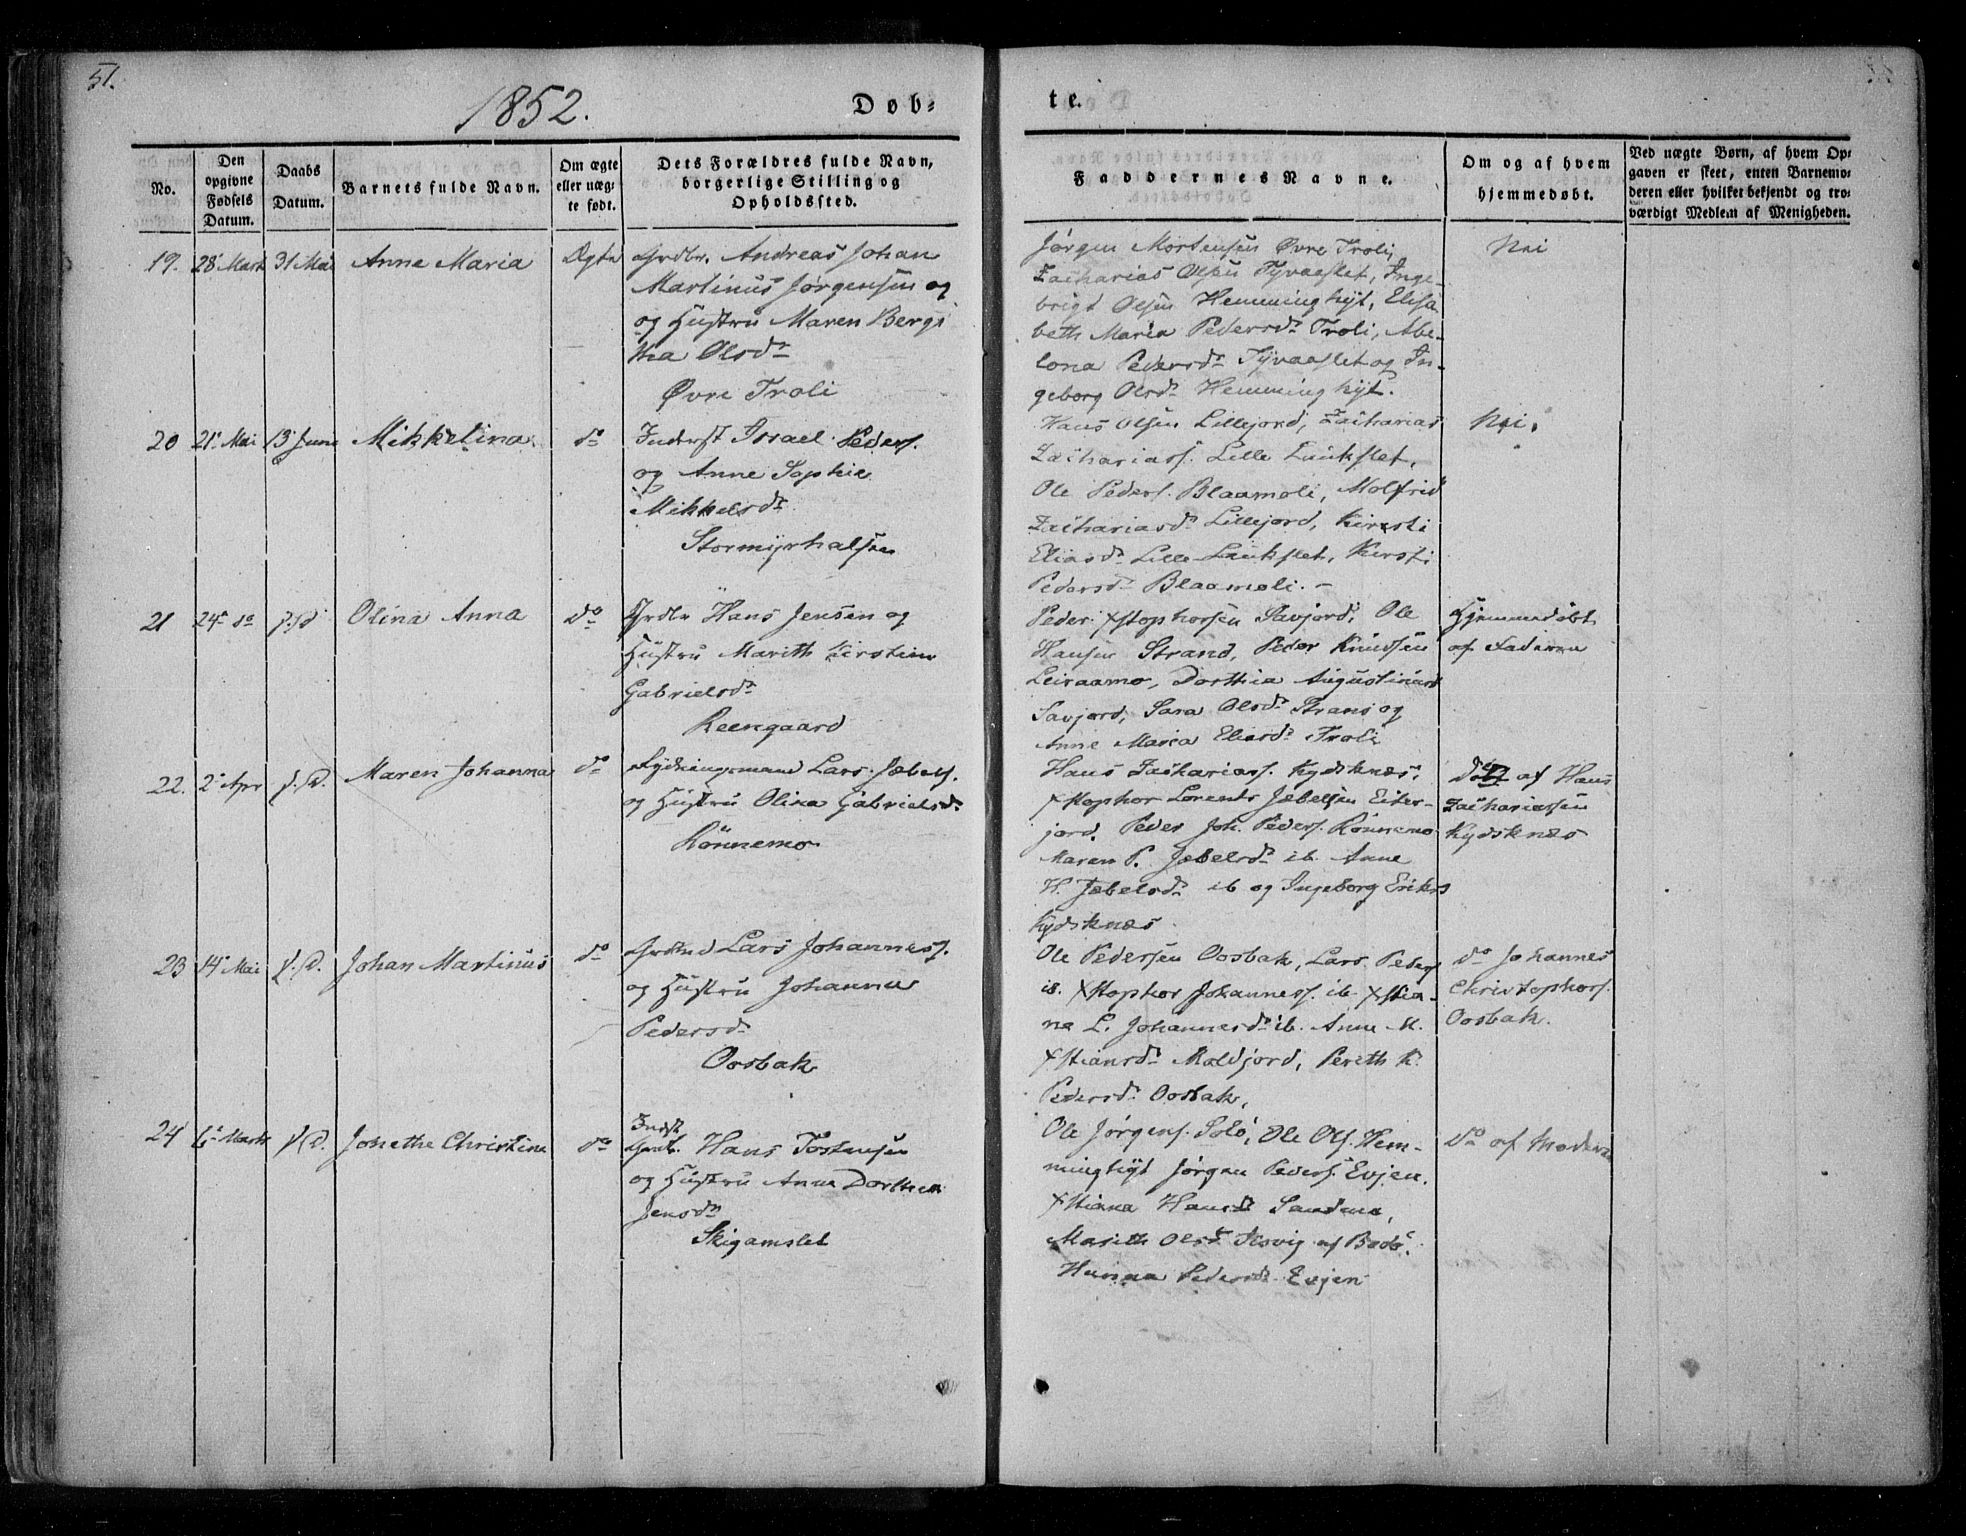 51.
1852.
Døb-
te.
No.
Den opgivne Fødsels Datum.
Daabs Datum.
Barnets fulde Navn.
Om ægte eller uæg-te født.
Dets Forældres fulde Navn, borgerlige Stilling og Opholdssted.
Faddernes Navne.
Om og af hvem hjemmedøbt.
Ved uægte Børn, af hvem Op-
gaven er skeet, enten Barnemo-
deren eller hvilket bekjendt og tro-
værdigt Medlem af Menigheden.
19. 28 Marts 31 Mai Anne Maria Ægte
Grdbr. Andreas Johan
Martinus Jørgensen og
og Hustru Maren Bergi
tha Olsdr
Øvre Troli
Jørgen Mortensen Øvre Troli,
Zacharias Olsen Tyvaaflet, Inge-
brigt Olsen Hemminghyt, Elisa
beth Maria Pedersdr Troli, Abe-
lona Pedersdr Tyvaaflet og In-
geborg Olsdr Hemminghyt.
Nei
20 21 Mai 13 Juni Mikkelina do
Inderst Israel Peders.
og Anne Sophie
Mikkelsdr
Stormyrhalsen
Hans Olsen Lillejord, Zacharias
Zachariass. Lille Laukslet,
Ole Peders. Blaamoli, Molfrid
Zachariasd. Lillejord, Kirsti
Eliasdr Lille Laukslet, Kirsti
Pedersdr Blaamoli.-
Nei.
21 24 do s.D Olina Anna do
Grdbr Hans Jensen og
Hustru Marith Kirstine
Gabrielsdr
Reengaard
Peder Xstophersen Savjord, Ole
Hansen Strand, Peder Knudsen
Leiraamo, Dorthia Augustinusd
Savjord, Sara Olsdr Strand og
Anne Maria Eliasdr Troli
Hjemmedøbt
af Faderen
22. 2 Apr s.D. Maren Johanna do
Lars Jæbels.
og Hustru Olina Gabrielsdr
Rönnemo
Hans Zachariass. Kydsknæs,
Xstophor Lorents Jæbelsen Eiter-
jord, Peder Joh. Peders. Rönnemo
Maren P. Jæbelsdr ib. Anne
H. Jæbelsdr ib og Ingeborg Eriksd
Kydsknæs
do af Hans
Zachariassen
Kydsknæs
23 14 Mai s.D. Johan Martinus do
Lars Johanness.
og Hustru Johanna
Pedersdr
Oosbak
Ole Pedersen Oosbak, Lars Peders
ib. Xstophor Johanness. ib. Xstia-
na L. Johannesdr ib. Anne M.
Xstiansdr Moldjord, Perith K.
Pedersdr Oosbak,
do Johannes
Christophors.
Oosbak.
24 6 Marts s.D. Jonetha Christina do
Indst
Grdb. Hans Tostensen
og Hustru Anne Dorthea
Jensdr
Skigamslet
Ole Jørgens. Solö, Ole Ols. Hem-
minghyt Jørgen Peders. Evjen.
Xstiana Hansd Sandmo,
Marith Olsd. af Bodö.
Hanna Pedersdr Evjen
do af Moderen